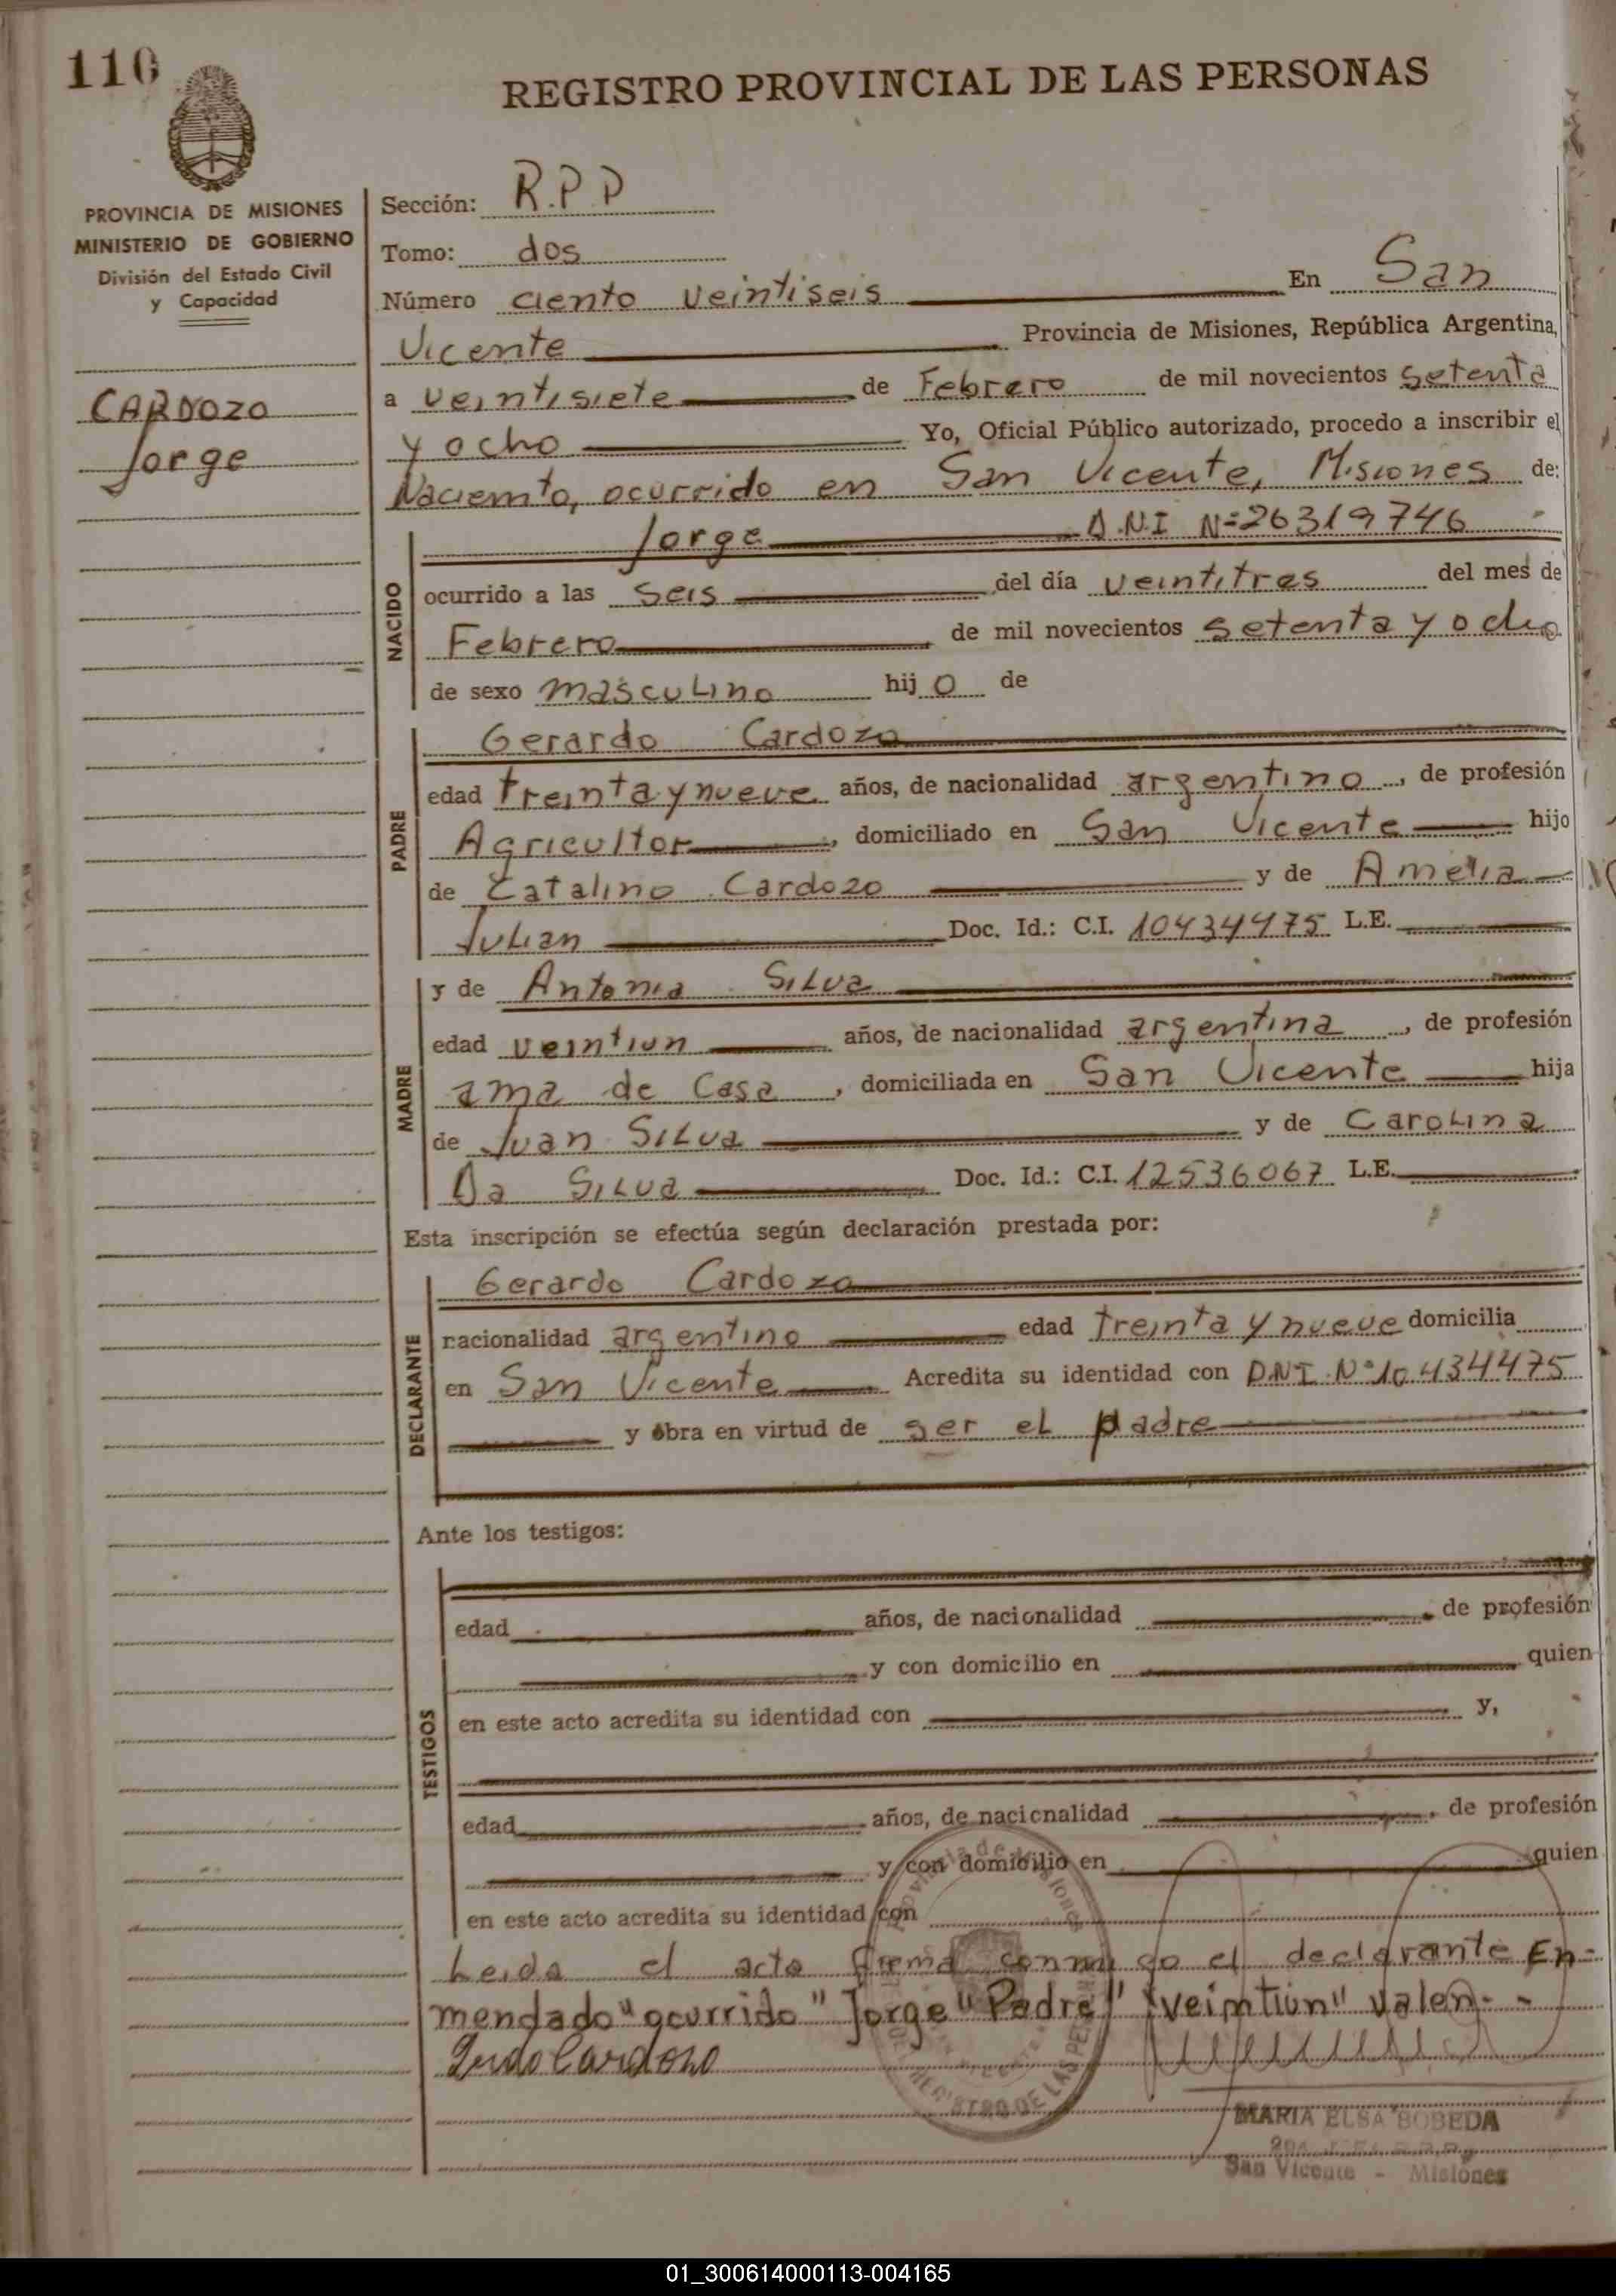 110
REGISTRO PROVINCIAL DE LAS PERSONAS
PROVINCIA DE MISIONES
MINISTERIO DE GOBIERNO
División del Estado Civil
y Capacidad
CARDOZO
Jorge
Sección: R.P.P
Tomo: dos
Número ciento veintiseis En San
Vicente Provincia de Misiones, República Argentina,
a veintisiete de Febrero de mil novecientos setenta
y ocho Yo, Oficial Público autorizado, procedo a inscribir el
Naciemto, ocurrido en San Vicente, Misiones de:
NACIDO
Jorge D.N.I Nº 26319746
ocurrido a las seis del día veintitres del mes de
Febrero de mil novecientos setenta y ocho
de sexo masculino hijo de
PADRE
Gerardo Cardozo
edad treinta y nueve años, de nacionalidad argentino, de profesión
Agricultor, domiciliado en San Vicente hijo
de Catalino Cardozo y de Amelia
Julian Doc. Id.: C.I. 10434475 L.E.
MADRE
y de Antonia Silva
edad veintiun años, de nacionalidad argentina, de profesión
ama de Casa, domiciliada en San Vicente hija
de Juan Silva y de Carolina
Da Silva Doc. Id.: C.I. 12536067 L.E.
Esta inscripción se efectúa según declaración prestada por:
DECLARANTE
Gerardo Cardozo
nacionalidad argentino edad treinta y nueve domicilia
en San Vicente Acredita su identidad con D.N.I. Nº 10434475
y obra en virtud de ser el padre
Ante los testigos:
TESTIGOS
edad años, de nacionalidad de profesión
y con domicilio en quien
en este acto acredita su identidad con y,
edad años, de nacionalidad, de profesión
y con domicilio en quien
en este acto acredita su identidad con
Leida el acta firma conmigo el declarante En-
mendado "ocurrido" Jorge "Padre" "veimtiun" Valen--
Cardozo
MARIA ELSA BOBEDA
San Vicente - Misiones
01_300614000113-004165